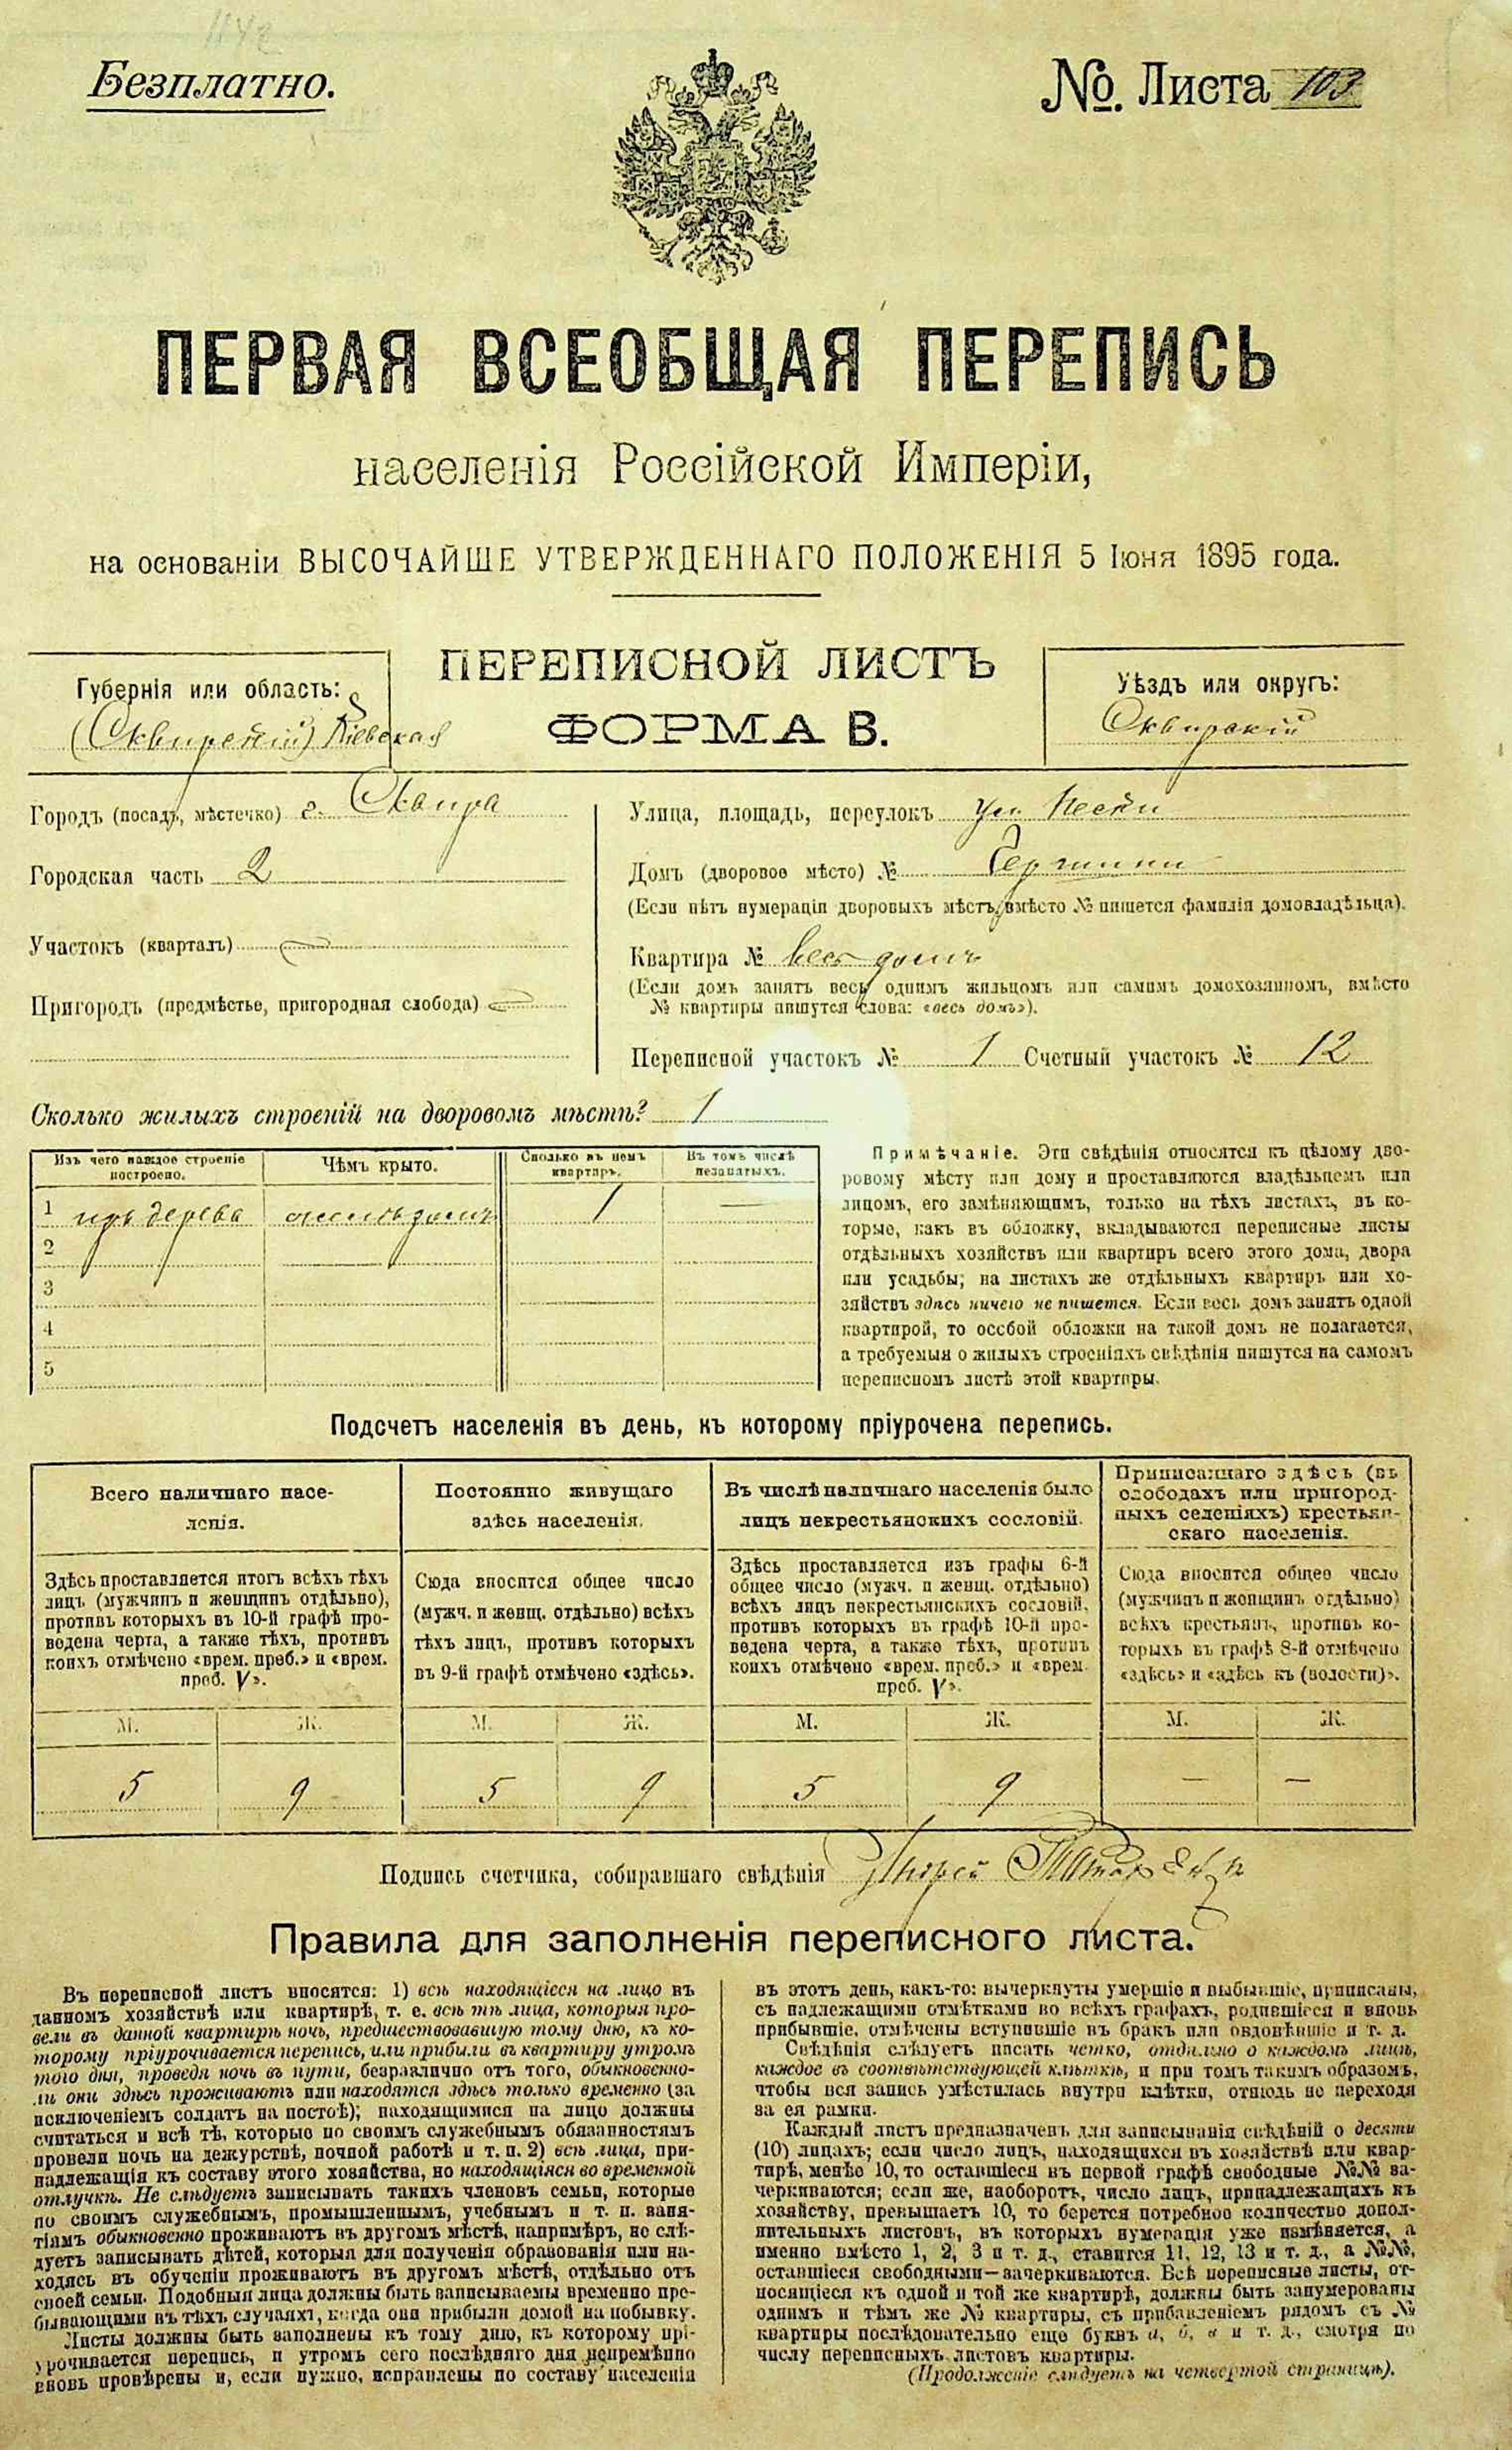 Безплатно.
№. Листа 103
ПЕРВАЯ ВСЕОБЩАЯ ПЕРЕПИСЬ
населенія Россійской Имперіи,
на основаніи ВЫСОЧАЙШЕ УТВЕРЖДЕННАГО ПОЛОЖЕНІЯ 5 Іюня 1895 года.
ПЕРЕПИСНОЙ ЛИСТЪ
ФОРМА В.
Губернія или область:
Кіевская
Уѣздъ или округъ:
Сквирскій
Городъ (посадъ, мѣстечко) г. Сквира
Городская часть 2
Участокъ (кварталъ)
Пригородъ (предмѣстье, пригородная слобода)
Улица, площадь, переулокъ ул.
Домъ (дворовое мѣсто) №
(Если нѣтъ нумераціи дворовыхъ мѣстъ, вмѣсто № пишется фамилія домовладѣльца).
Квартира № весь домъ
(Если домъ занятъ весь однимъ жильцомъ или самимъ домохозяиномъ, вмѣсто
№ квартиры пишутся слова: «весь домъ»).
Переписной участокъ № 1 Счетный участокъ № 12
Сколько жилыхъ строеній на дворовомъ мѣстѣ? 1
Изъ чего каждое строеніе построено.
Чѣмъ крыто.
Сколько въ немъ квартиръ.
Въ томъ числѣ незанятыхъ.
1 изъ дерева 1 —
2
3
4
5
Примѣчаніе. Эти свѣдѣнія относятся къ цѣлому дво-
ровому мѣсту или дому и проставляются владѣльцемъ или
лицомъ, его замѣняющимъ, только на тѣхъ листахъ, въ ко-
торые, какъ въ обложку, вкладываются переписные листы
отдѣльныхъ хозяйствъ или квартиръ всего этого дома, двора
или усадьбы; на листахъ же отдѣльныхъ квартиръ или хо-
зяйствъ здѣсь ничего не пишется. Если весь домъ занятъ одной
квартирой, то особой обложки на такой домъ не полагается,
а требуемыя о жилыхъ строеніяхъ свѣдѣнія пишутся на самомъ
переписномъ листѣ этой квартиры.
Подсчетъ населенія въ день, къ которому пріурочена перепись.
Всего наличнаго насе-
ленія.
Постоянно живущаго
здѣсь населенія.
Въ числѣ наличнаго населенія было
лицъ некрестьянскихъ сословій.
Приписаннаго здѣсь (въ
слободахъ или пригород-
ныхъ селеніяхъ) крестьян-
скаго населенія.
Здѣсь проставляется итогъ всѣхъ тѣхъ
лицъ (мужчинъ и женщинъ отдѣльно),
противъ которыхъ въ 10-й графѣ про-
ведена черта, а также тѣхъ, противъ
коихъ отмѣчено «врем. преб.» и «врем.
преб. V».
Сюда вносится общее число
(мужч. и женщ. отдѣльно) всѣхъ
тѣхъ лицъ, противъ которыхъ
въ 9-й графѣ отмѣчено «здѣсь».
Здѣсь проставляется изъ графы 6-й
общее число (мужч. и женщ. отдѣльно)
всѣхъ лицъ некрестьянскихъ сословій,
противъ которыхъ въ графѣ 10-й про-
ведена черта, а также тѣхъ, противъ
коихъ отмѣчено «врем. преб.» и «врем.
преб. V».
Сюда вносится общее число
(мужчинъ и женщинъ отдѣльно)
всѣхъ крестьянъ, противъ ко-
торыхъ въ графѣ 8-й отмѣчено
«здѣсь» и «здѣсь къ (волости)».
М. Ж. М. Ж. М. Ж. М. Ж.
5 9 5 9 5 9 — —
Подпись счетчика, собиравшаго свѣдѣнія
Правила для заполненія переписного листа.
Въ переписной листъ вносятся: 1) всѣ находящіеся на лицо въ
данномъ хозяйствѣ или квартирѣ, т. е. всѣ тѣ лица, которыя про-
вели въ данной квартирѣ ночь, предшествовавшую тому дню, къ ко-
торому пріурочивается перепись, или прибыли въ квартиру утромъ
того дня, проведя ночь въ пути, безразлично отъ того, обыкновенно-
ли они здѣсь проживаютъ или находятся здѣсь только временно (за
исключеніемъ солдатъ на постоѣ); находящимися на лицо должны
считаться и всѣ тѣ, которые по своимъ служебнымъ обязанностямъ
провели ночь на дежурствѣ, ночной работѣ и т. п. 2) всѣ лица, при-
надлежащія къ составу этого хозяйства, но находящіяся во временной
отлучкѣ. Не слѣдуетъ записывать такихъ членовъ семьи, которые
по своимъ служебнымъ, промышленнымъ, учебнымъ и т. п. заня-
тіямъ обыкновенно проживаютъ въ другомъ мѣстѣ, напримѣръ, не слѣ-
дуетъ записывать дѣтей, которыя для полученія образованія или на-
ходясь въ обученіи проживаютъ въ другомъ мѣстѣ, отдѣльно отъ
своей семьи. Подобныя лица должны быть записываемы временно пре-
бывающими въ тѣхъ случаяхъ, когда они прибыли домой на побывку.
Листы должны быть заполнены къ тому дню, къ которому прі-
урочивается перепись, и утромъ сего послѣдняго дня непремѣнно
вновь провѣрены и, если нужно, исправлены по составу населенія
въ этотъ день, какъ-то: вычеркнуты умершіе и выбывшіе, приписаны,
съ надлежащими отмѣтками во всѣхъ графахъ, родившіеся и вновь
прибывшіе, отмѣчены вступившіе въ бракъ или овдовѣвшіе и т. д.
Свѣдѣнія слѣдуетъ писать четко, отдѣльно о каждомъ лицѣ,
каждое въ соотвѣтствующей клѣткѣ, и при томъ такимъ образомъ,
чтобы вся запись умѣстилась внутри клѣтки, отнюдь не переходя
за ея рамки.
Каждый листъ предназначенъ для записыванія свѣдѣній о десяти
(10) лицахъ; если число лицъ, находящихся въ хозяйствѣ или квар-
тирѣ, менѣе 10, то оставшіеся въ первой графѣ свободные №№ за-
черкиваются; если же, наоборотъ, число лицъ, принадлежащихъ къ
хозяйству, превышаетъ 10, то берется потребное количество допол-
нительныхъ листовъ, въ которыхъ нумерація уже измѣняется, а
именно вмѣсто 1, 2, 3 и т. д., ставится 11, 12, 13 и т. д., а №№,
оставшіеся свободными—зачеркиваются. Всѣ переписные листы, от-
носящіеся къ одной и той же квартирѣ, должны быть занумерованы
однимъ и тѣмъ же № квартиры, съ прибавленіемъ рядомъ съ №
квартиры послѣдовательно еще буквъ а, б, в и т. д., смотря по
числу переписныхъ листовъ квартиры.
(Продолженіе слѣдуетъ на четвертой страницѣ).